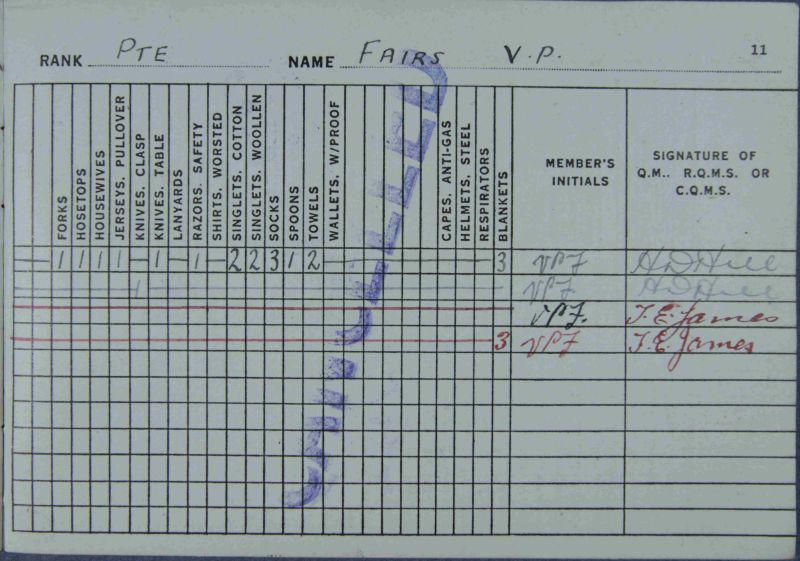 RANK PTE NAME FAIRS V.P. 11
FORKS
HOSETOPS
HOUSEWIVES
JERSEYS. PULLOVER
KNIVES. CLASP
KNIVES. TABLE
LANYARDS
RAZORS. SAFETY
SHIRTS. WORSTED
SINGLETS. COTTON
SINGLETS. WOOLLEN
SOCKS
SPOONS
TOWELS
WALLETS. W/PROOF
CAPES. ANTI-GAS
HELMETS. STEEL
RESPIRATORS
BLANKETS
MEMBER'S
INITIALS
SIGNATURE OF
Q.M.. R.Q.M.S. OR
C.Q.M.S.
CANCELLED
1 1 1 1 — 1 — 1 — 2 2 3 1 2 3 VPF H D Hill
1 VPF H D Hill
VPF. T. E. James
3 VPF T. E. James